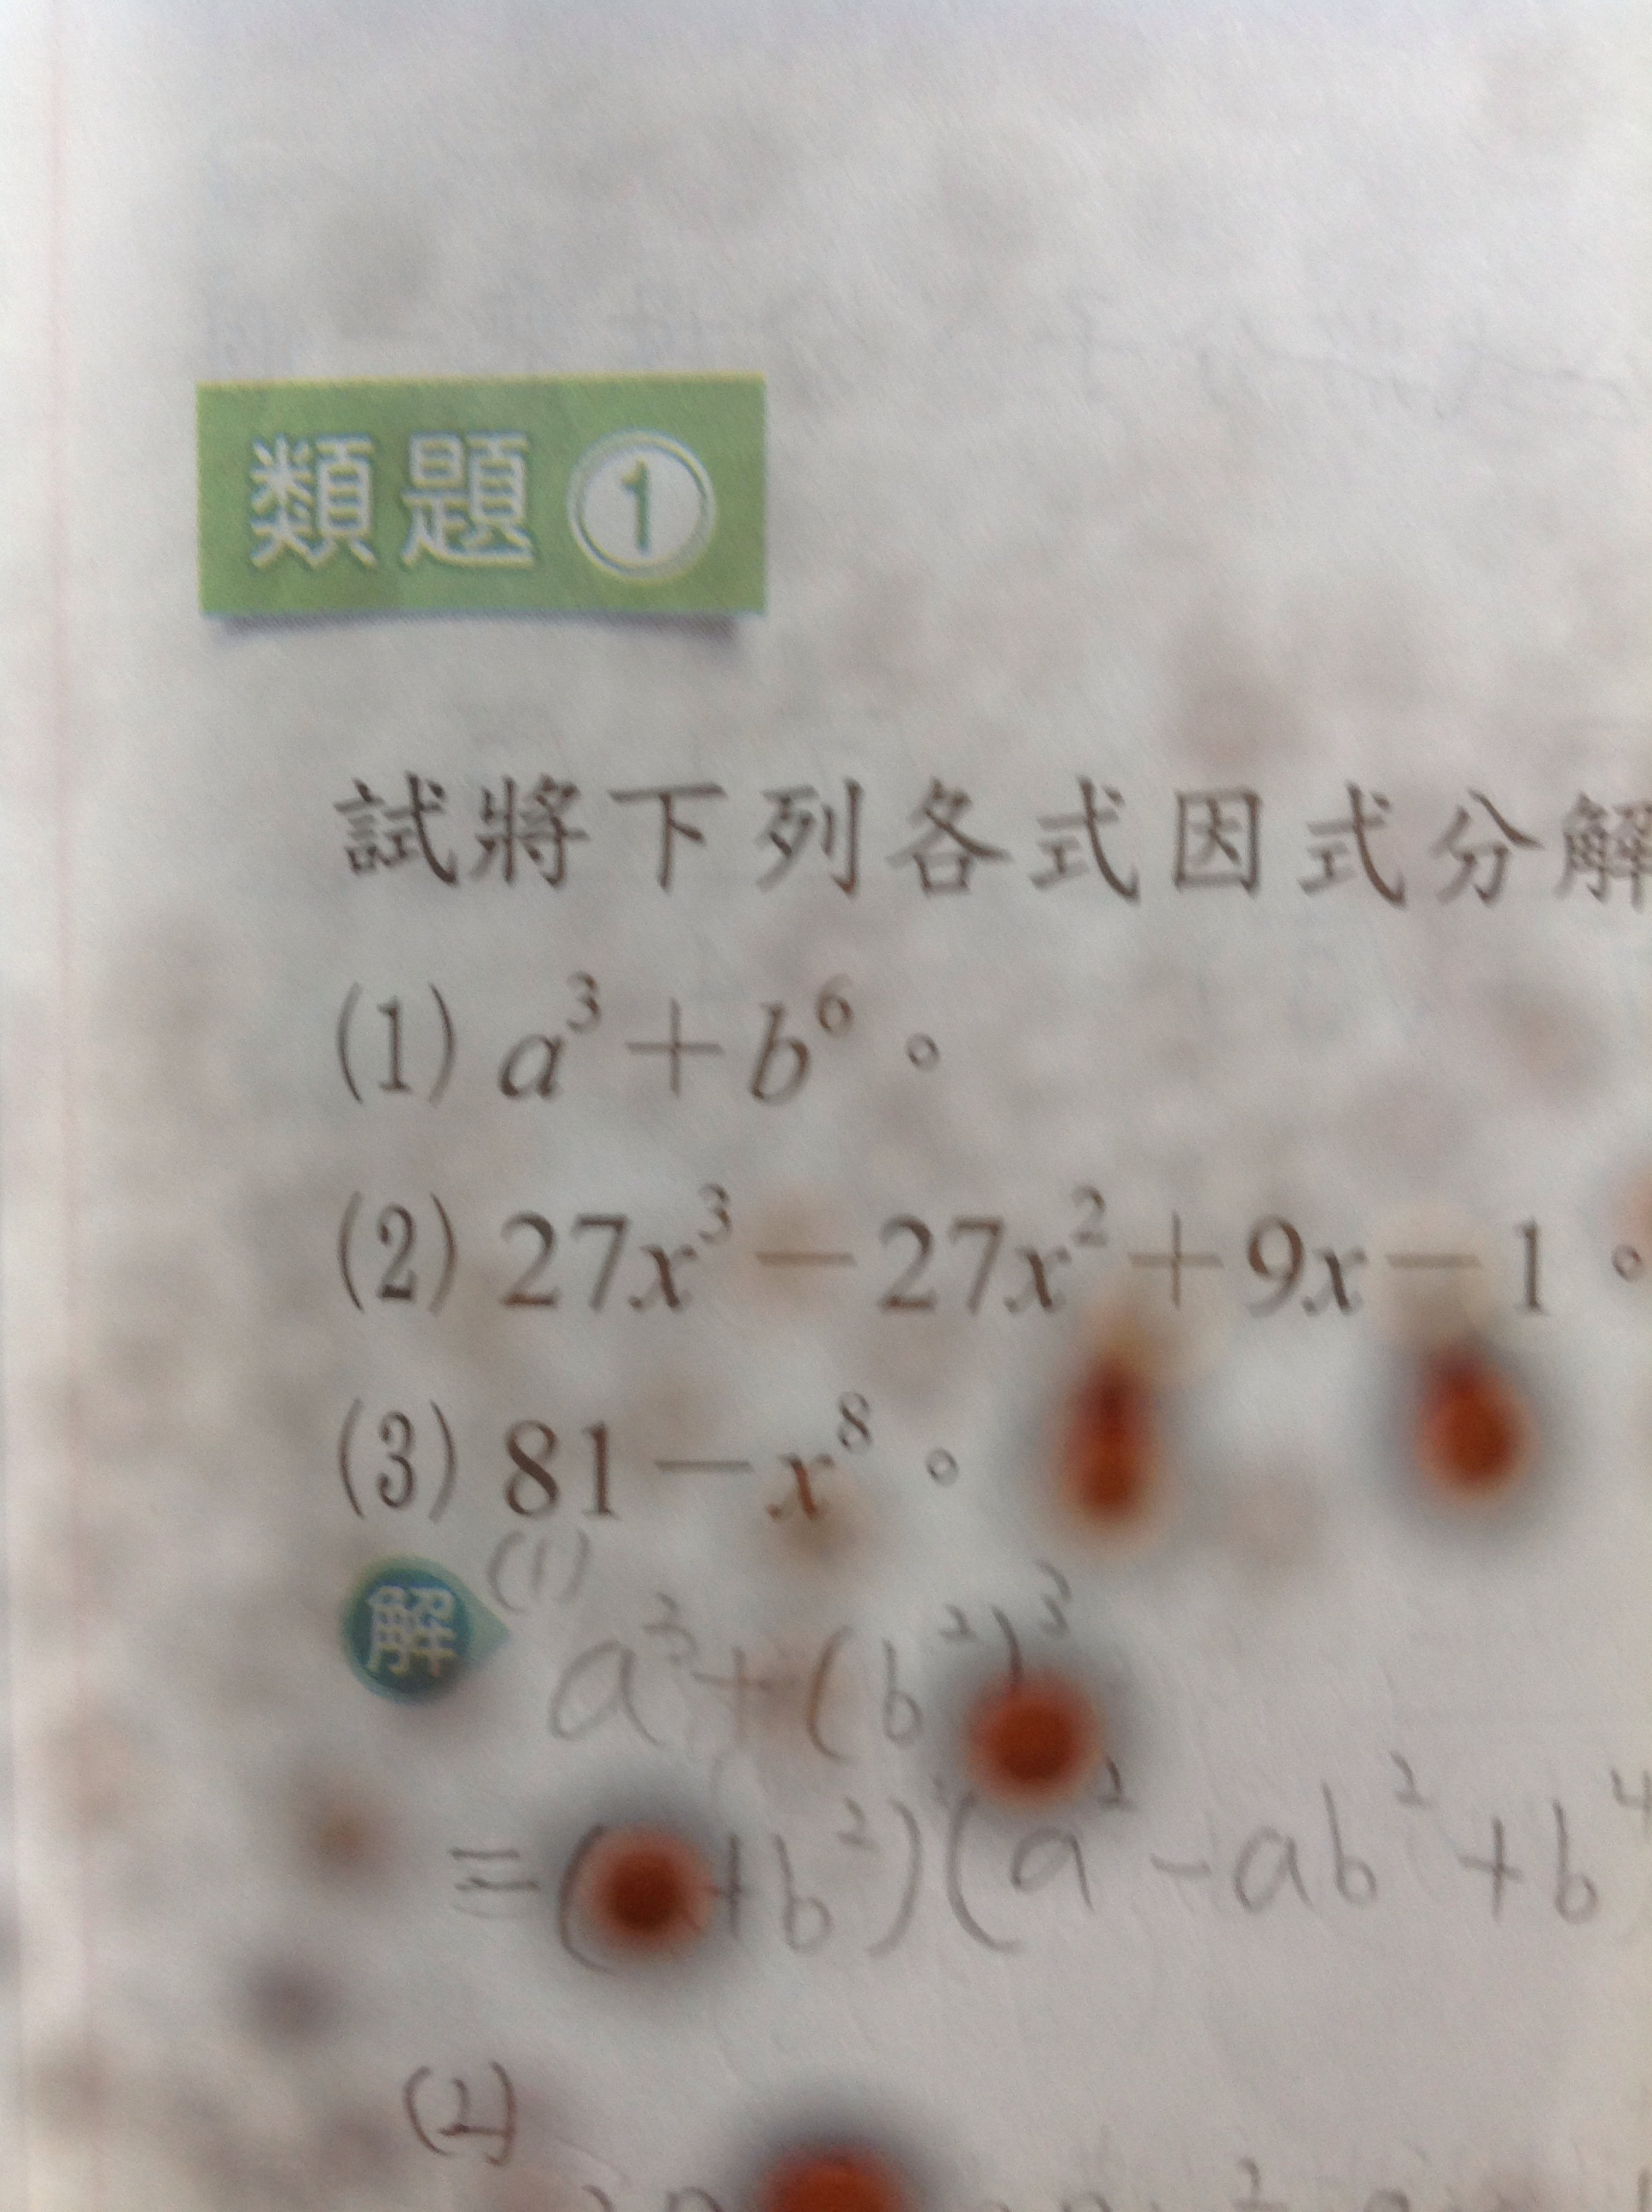 類題 1
試將下列各式因式分解
(1) a³+b⁶。
(2) 27x³−27x²+9x−1。
(3) 81−x⁸。
解 (1)
a³+(b²)³
=( +b²)(a²-ab²+b⁴
(2)